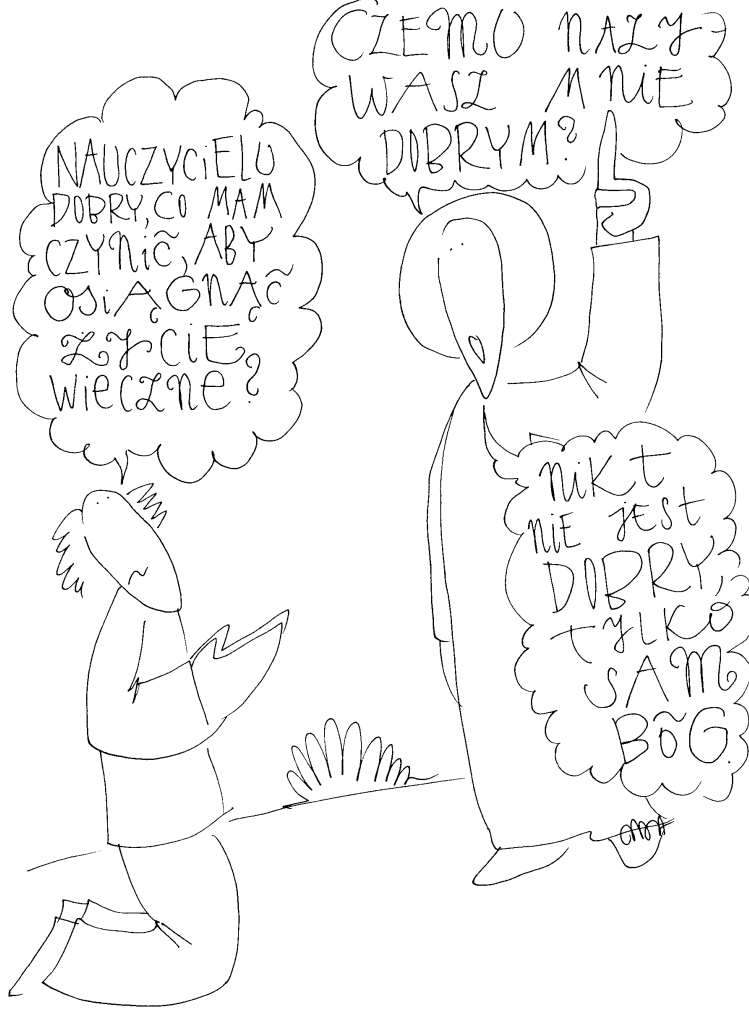 NAUCZYCIELU
DOBRY, CO MAM
CZYNIĆ, ABY
OSIĄGNĄĆ
ŻYCIE
WIECZNE?
CZEMU NAZY-
WASZ MNIE
DOBRYM?
NIKT
NIE JEST
DOBRY,
TYLKO
SAM
BÓG.